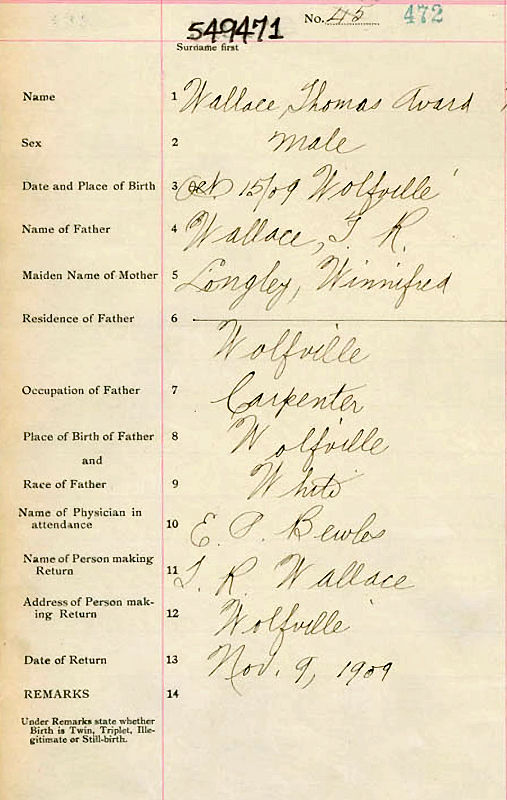 No. 45 472
549471
Surname first
Name 1 Wallace, Thomas Avard
Sex 2 Male
Date and Place of Birth 3 Oct 15/09 Wolfville
Name of Father 4 Wallace, T. R.
Maiden Name of Mother 5 Longley, Winnifred
Residence of Father 6
Wolfville
Occupation of Father 7 Carpenter
Place of Birth of Father 8 Wolfville
and
Race of Father 9 White
Name of Physician in
attendance 10 E. P. Bewles
Name of Person making
Return 11 T. R. Wallace
Address of Person mak-
ing Return 12 Wolfville
Date of Return 13 Nov. 9, 1909
REMARKS 14
Under Remarks state whether
Birth is Twin, Triplet, Ille-
gitimate or Still-birth.